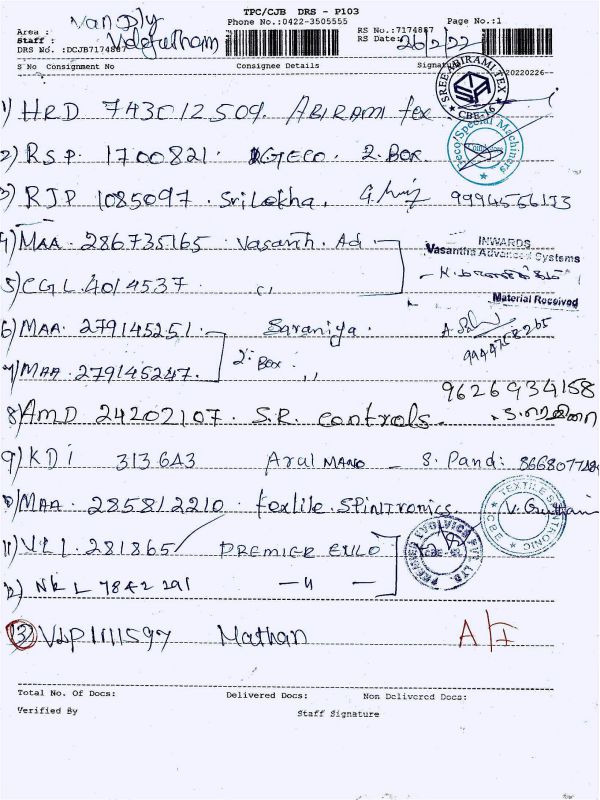 TPC/CJB DRS - P103
Van Ply
Phone No.:0422-3505555
Page No.:1
Area :
Staff :
RS No.:7174887
RS Date: 26/2/22
DRS No. :DCJB7174887
S No Consignment No Consignee Details Signature
20220226
SREE ABIRAMI TEX
CBE-16
1) HRD 743012509. ABIRAMI tex
2) RSP. 1700821. GECO. 2. Box
Geco Special Machines
3) RJP 1085097. Srilekha.
4) MAA. 286735165 Vasanth. Ad
INWARDS
Vasantha Advanced Systems
5) CGL. 4014537 "
Material Received
6) MAA. 279145251. Saraniya.
9444758265
2. Box
7) MAA. 279145247. "
9626934158
8) AMD 24202107. S.R. controls.
9) KDI 313643 Arul MANO - S. Pand:
10) MAA. 285812210. textile. SPINTRONICS.
TEXTILE SPINTRONIC
CBE
11) VLL. 281865 PREMIER EVLO
12) NKL 7842291 — " —
13) VLP1111597 Mathan
Total No. Of Docs: Delivered Docs: Non Delivered Docs:
Verified By Staff Signature